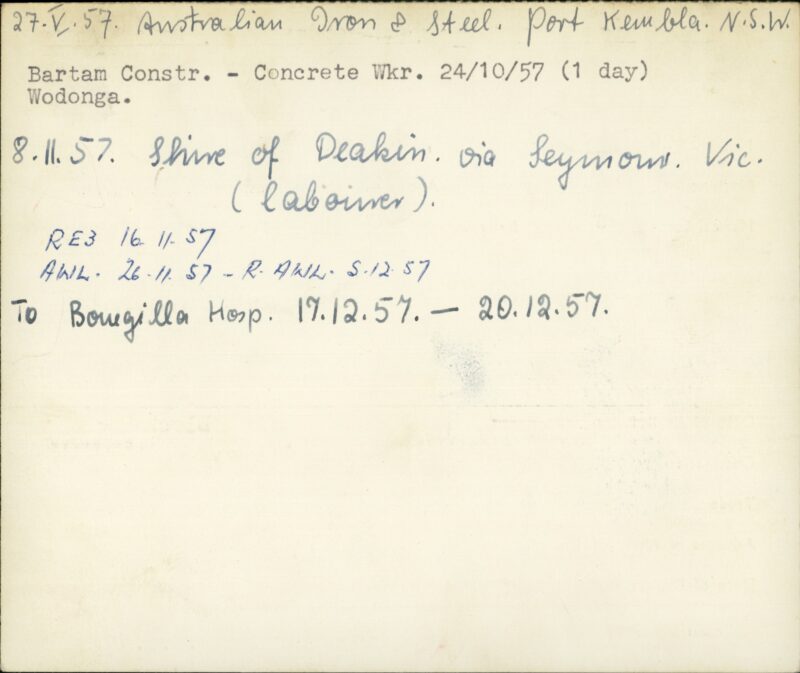 27.V.57. Australian Iron & Steel. Port Kembla. N.S.W.
Bartam Constr. - Concrete Wkr. 24/10/57 (1 day)
Wodonga.
8.11.57. Shire of Deakin. via Seymour. Vic.
(labourer).
RE3 16.11.57
AWL. 26.11.57 - R.AWL. 5.12.57
To Bonegilla Hosp. 17.12.57. — 20.12.57.